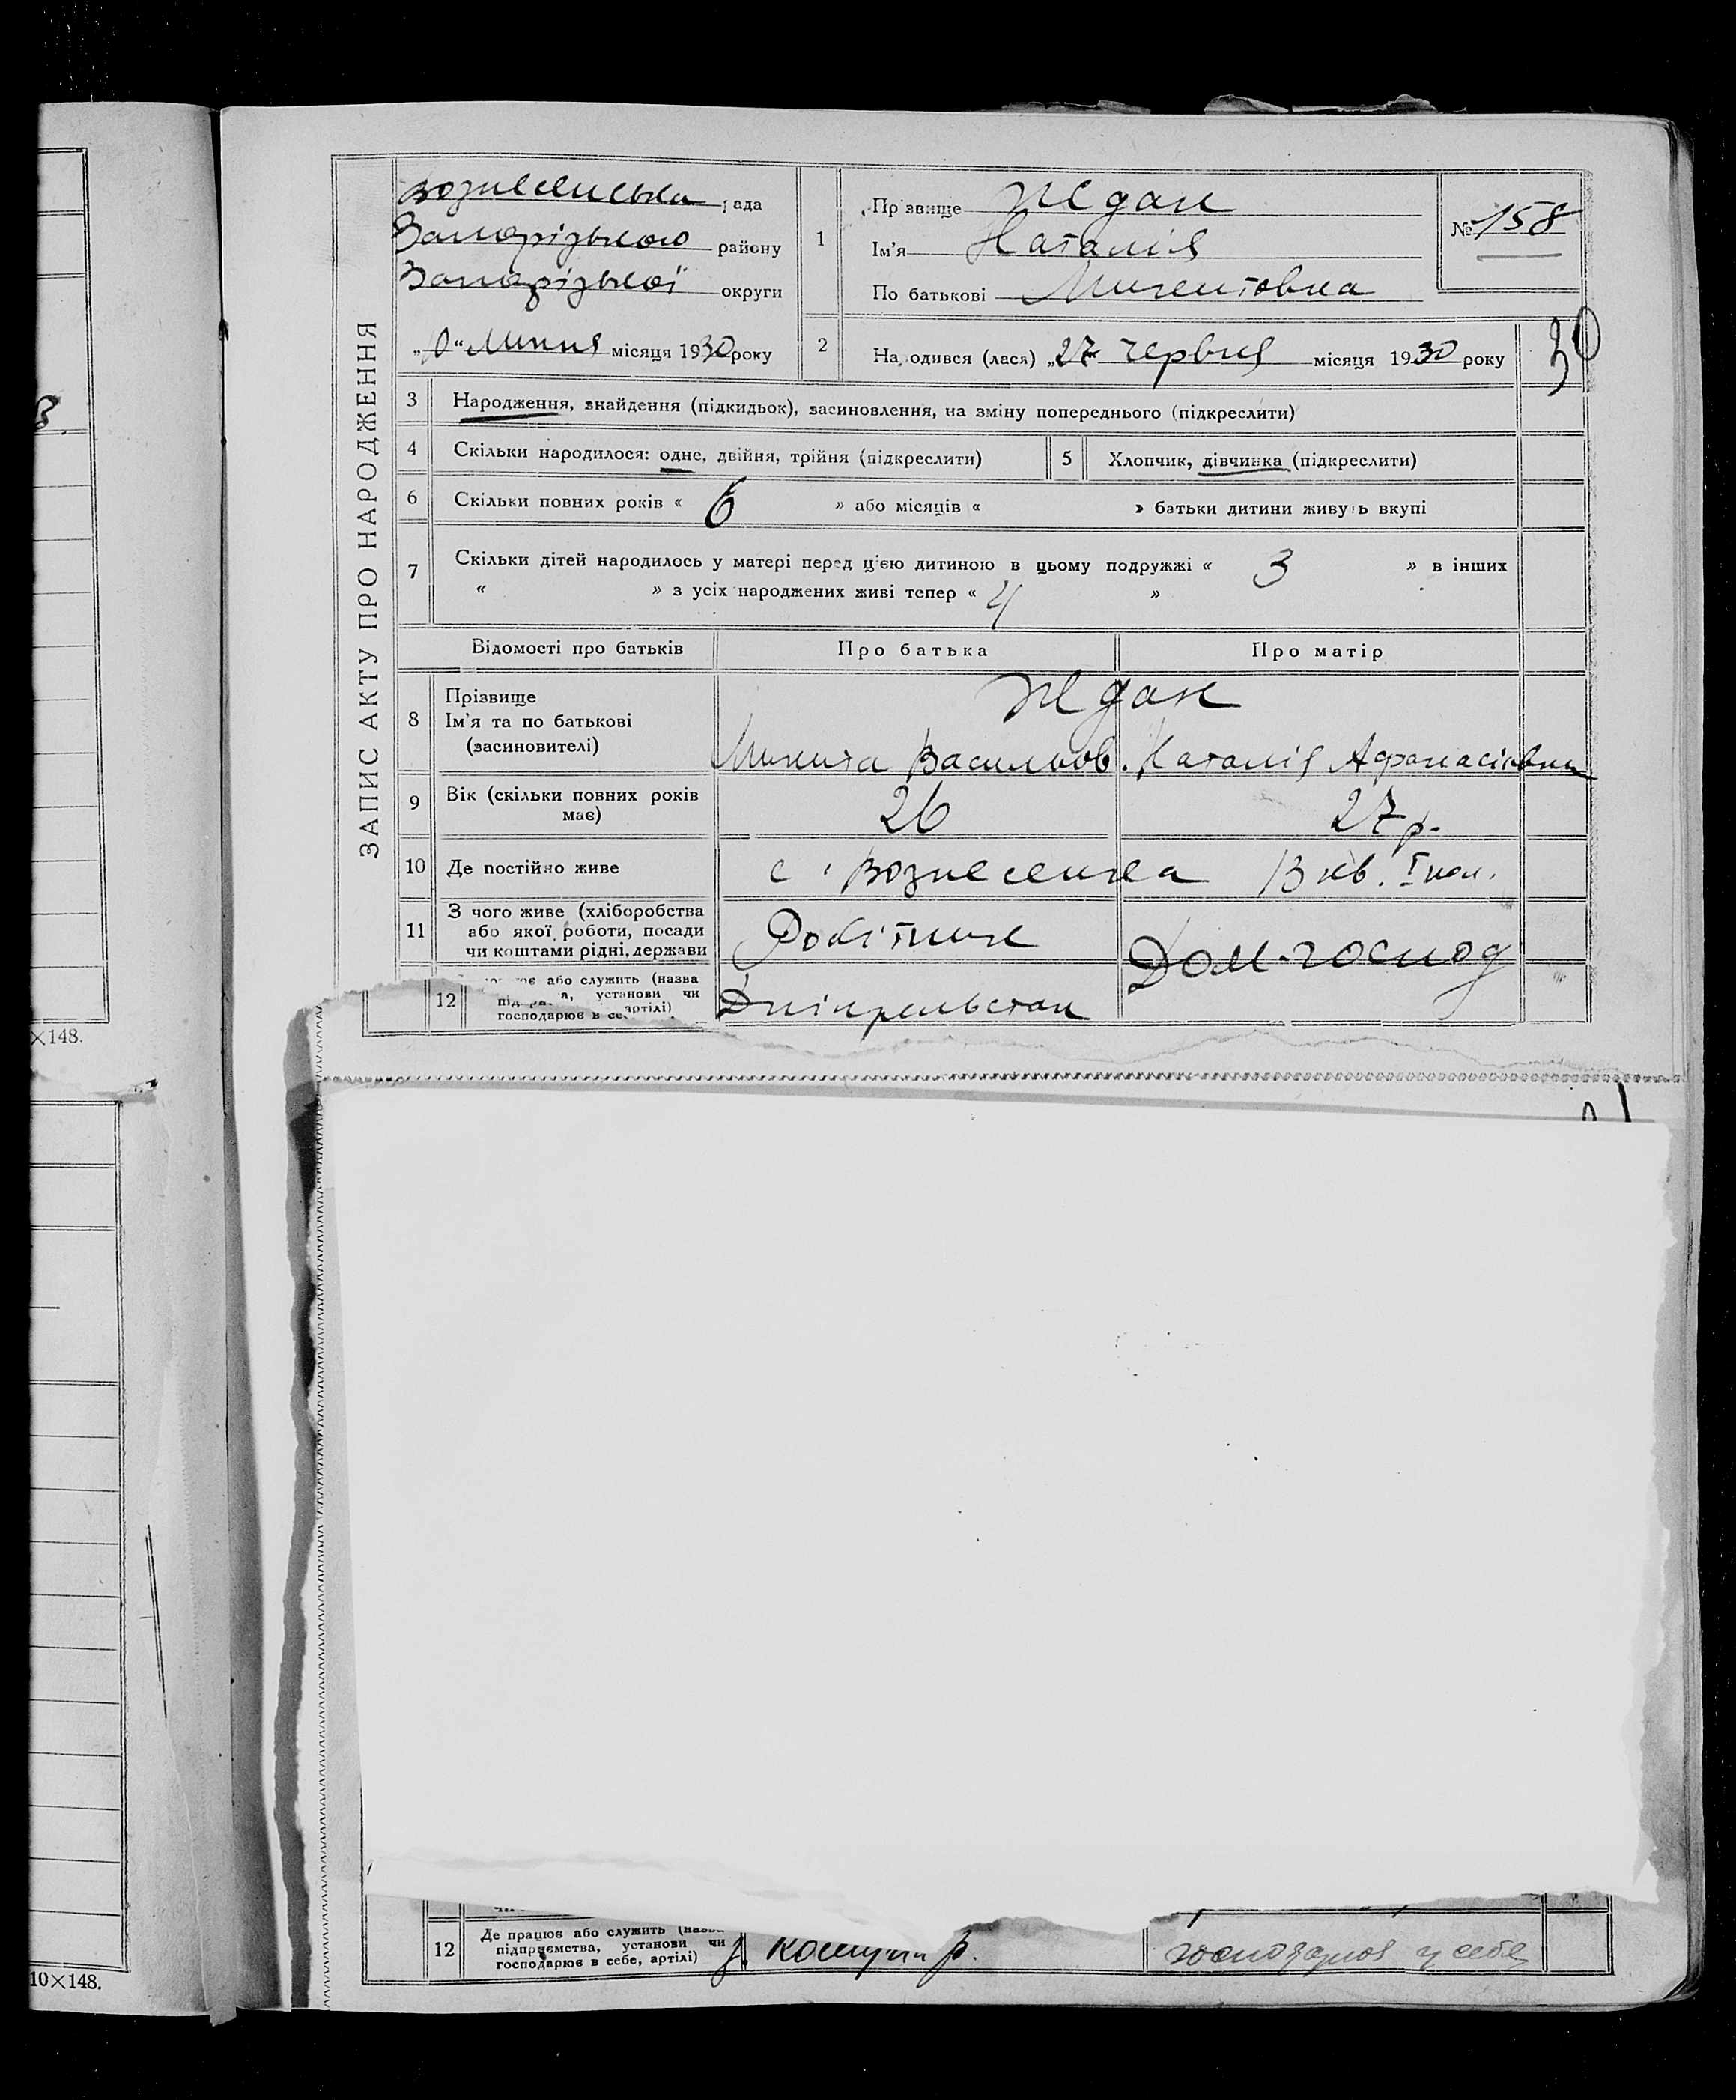 ЗАПИС АКТУ ПРО НАРОДЖЕННЯ
Вознесенська рада
Запорізького району
Запорізької округи
„10“ Липня місяця 1930 року
1
Прізвище Ждан
Ім'я Наталія
По батькові Микитовна
№ 158
2
Народився (лася) „27 червня місяця 1930 року
30
3 Народження, знайдення (підкидьок), засиновлення, на зміну попереднього (підкреслити)
4 Скільки народилося: одне, двійня, трійня (підкреслити)
5 Хлопчик, дівчинка (підкреслити)
6 Скільки повних років « 6 » або місяців « » батьки дитини живуть вкупі
7 Скільки дітей народилось у матері перед цією дитиною в цьому подружжі « 3 » в інших
« » з усіх народжених живі тепер « 4 »
Відомості про батьків Про батька Про матір
8 Прізвище
Ім'я та по батькові
(засиновителі)
Ждан
Микита Васильов. Наталія Афанасіївна
9 Вік (скільки повних років
має)
26 27 р.
10 Де постійно живе с. Вознесенка 13 кв. I
11 З чого живе (хліборобства
або якої роботи, посади
чи коштами рідні, держави
Робітник Дом-господ
12 або служить (назва
установи чи
артілі)
господарює в
Дніпрельстан
12 Де працює або служить (назва
підприємства, установи чи
господарює в себе, артілі)
р. господарює у себе
×148.
10×148.